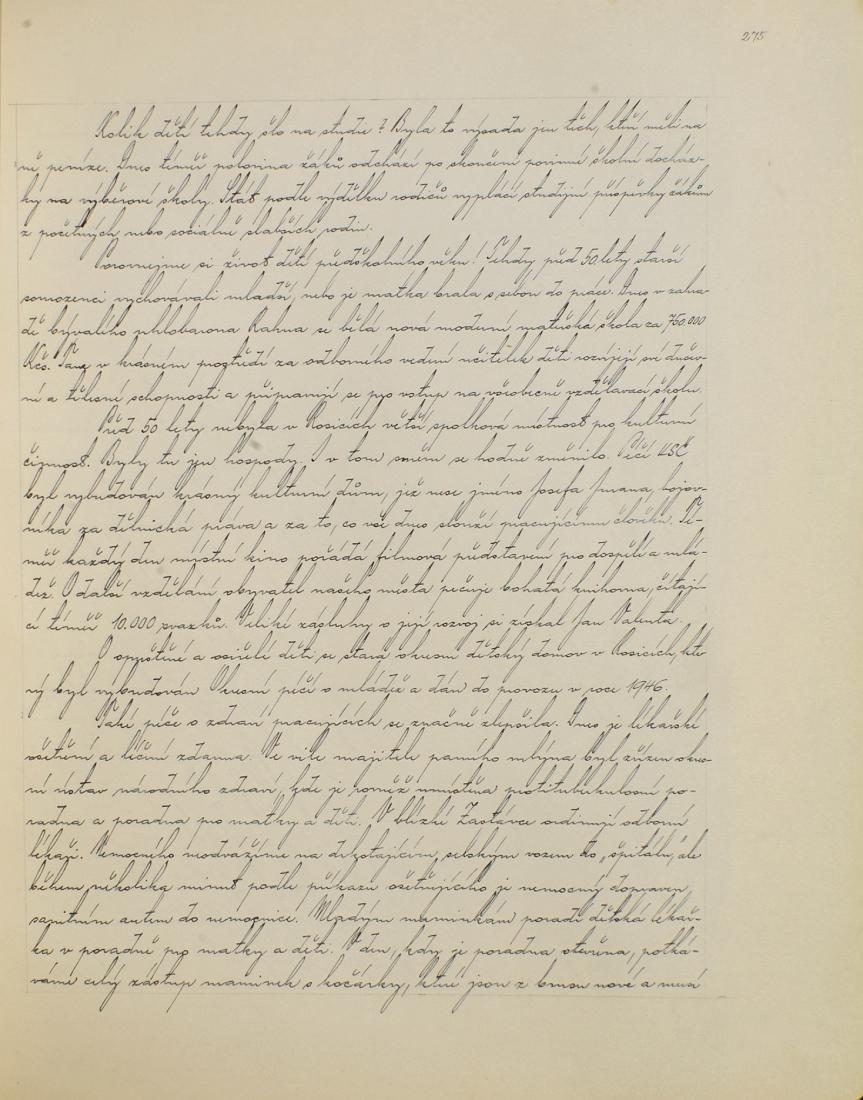 275
Kolik dětí tehdy šlo na studie? Byla to výsada jen těch, kteří měli na
ně peníze. Dnes téměř polovina žáků odchází po skončení povinné školní docház-
ky na výběrové školy. Stát podle výdělku rodičů vyplácí studijní příspěvky žákům
z početných nebo sociálně slabších rodin.
Porovnejme si život dětí předškolního věku! Tehdy před 50 lety starší
sourozenci vychovávali mladší, nebo je matka brala s sebou do práce. Dnes v zahra-
dě bývalého uhlobarona Rahna se bělá nová moderní mateřská škola za 750.000
Kčs. Tam v krásném prostředí za odborného vedení učitelek děti rozvíjejí své dušev-
ní a tělesné schopnosti a připravují se pro vstup na všeobecně vzdělávací školu.
Před 50 lety nebyla v Rosicích větší spolková místnost pro kulturní
činnost. Byly tu jen hospody. I v tom směru se hodně změnilo. Péčí KSČ
byl vybudován krásný kulturní dům, jež nese jméno Josefa Jurana, bojov-
níka za dělnická práva a za to, co vše dnes slouží pracujícímu člověku. Té-
měř každý den místní kino pořádá filmová představení pro dospělé a mlá-
dež. O další vzdělání obyvatel našeho města pečuje bohatá knihovna, čítají-
cí téměř 10.000 svazků. Veliké zásluhy o její rozvoj si získal Jan Valenta.
O opuštěné a osiřelé děti se stará okresní dětský domov v Rosicích, kte-
rý byl vybudován Okresní péčí o mládež a dán do provozu v roce 1946.
Také péče o zdraví pracujících se značně zlepšila. Dnes je lékařské
ošetření a léčení zdarma. Ve vile majitele parního mlýna byl zřízen okres-
ní ústav národního zdraví, kde je rovněž umístěna protituberkulosní po-
radna a poradna pro matky a děti. V blízké Zastávce ordinují odborní
lékaři. Nemocného neodvážíme na drkotajícím, selským vozem do „špitálu“, ale
během několika minut podle příkazu ošetřujícího je nemocný dopraven
sanitním autem do nemocnice. Mladým maminkám poradí dětská lékař-
ka v poradně pro matky a děti. V den, kdy je poradna otevřena, potká-
váme celý zástup maminek s kočárky, které jsou z brusu nové a musí